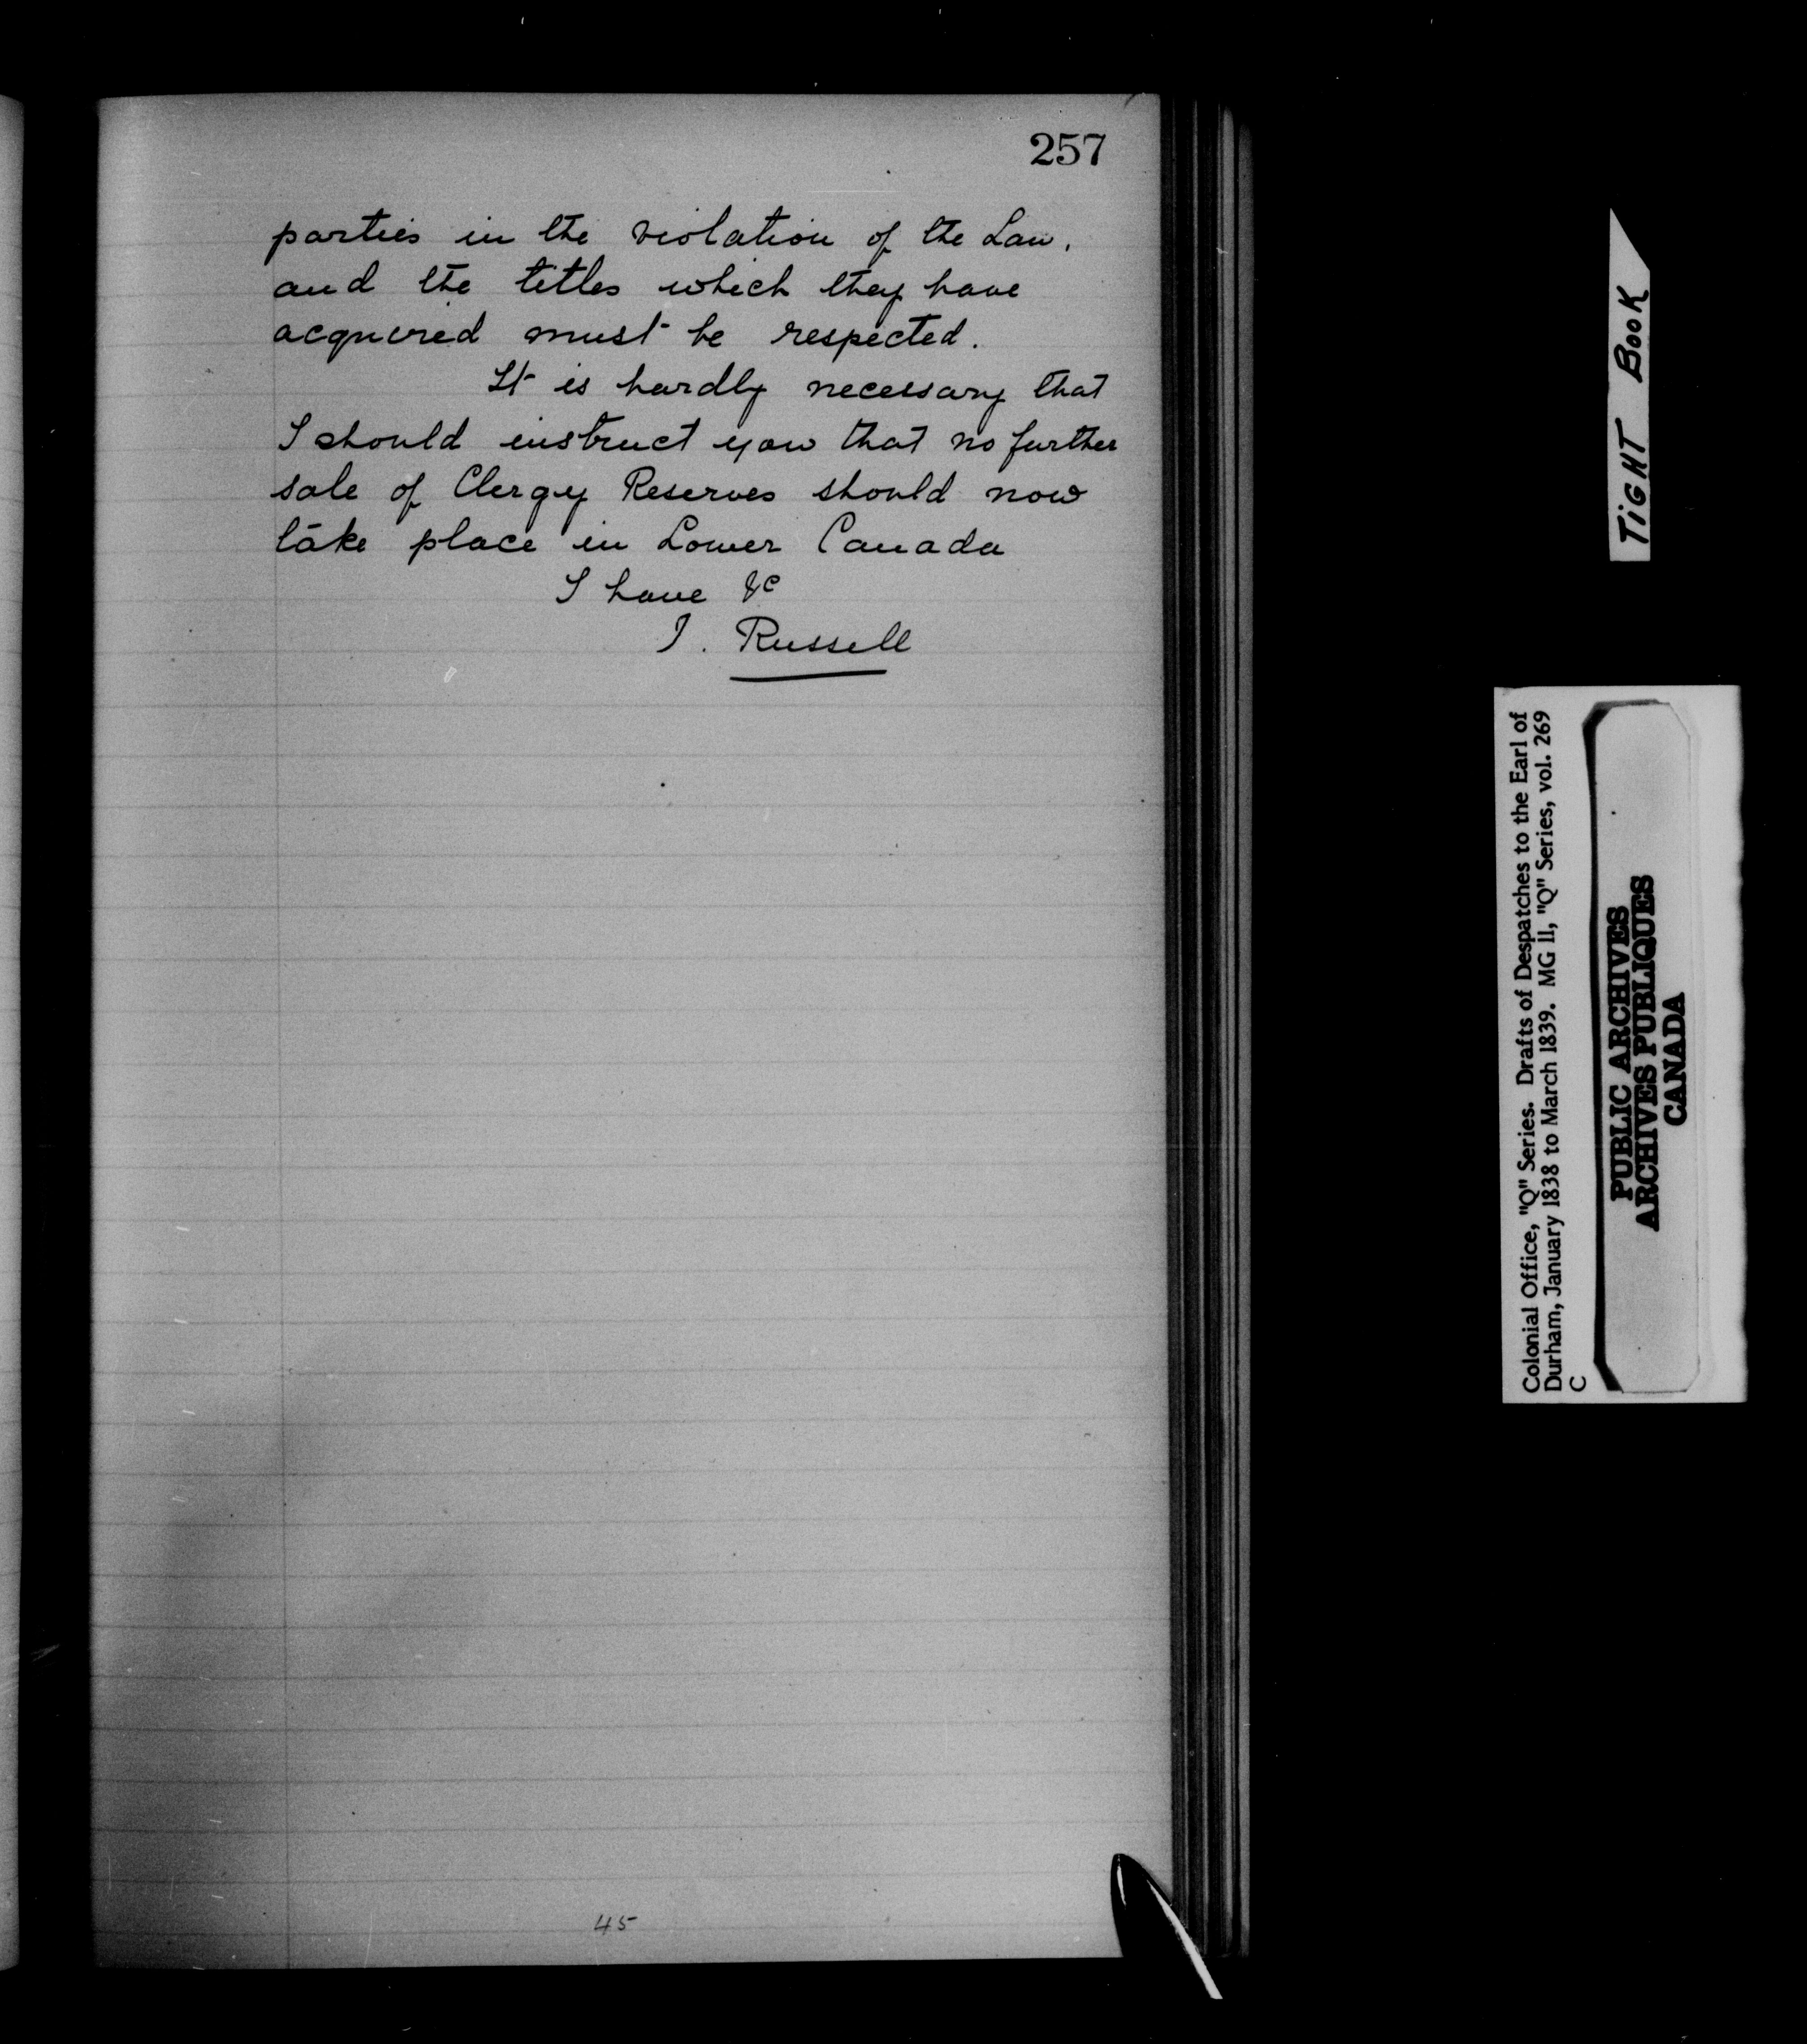 257
parties in the violation of the Law,
and the titles which they have
acquired must be respected.
It is hardly necessary that
I should instruct you that no further
sale of Clergy Reserves should now
take place in Lower Canada
I have &c
J. Russell
45
TIGHT BOOK
Colonial Office, "Q" Series. Drafts of Despatches to the Earl of
Durham, January 1838 to March 1839. MG 11, "Q" Series, vol. 269
C
PUBLIC ARCHIVES
ARCHIVES PUBLIQUES
CANADA